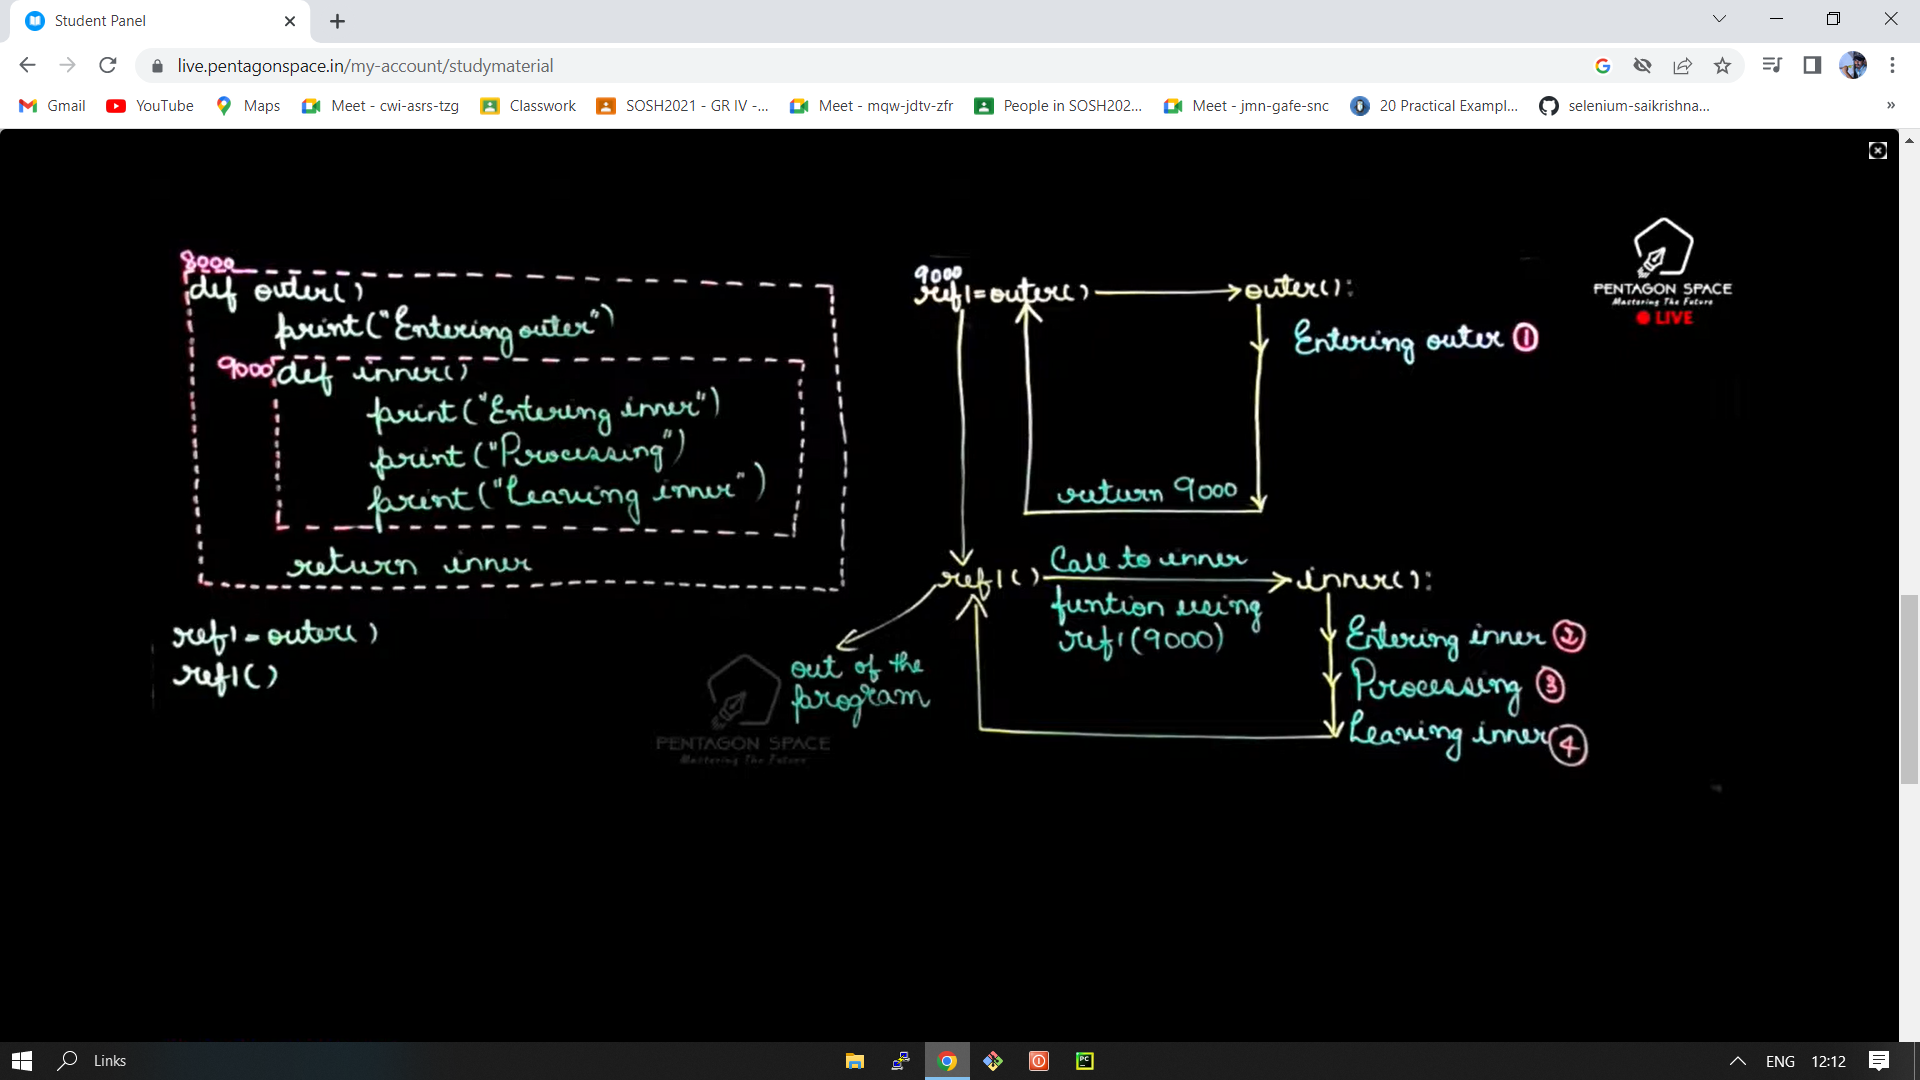 Student Panel
live.pentagonspace.in/my-account/studymaterial
Gmail
YouTube
Maps
Meet - cwi-asrs-tzg
Classwork
SOSH2021 - GR IV -...
Meet - mqw-jdtv-zfr
People in SOSH202...
Meet - jmn-gafe-snc
20 Practical Exampl...
selenium-saikrishna...
»
PENTAGON SPACE
Mastering The Future
LIVE
8000
def outer()
print("Entering outer")
9000 def inner()
print("Entering inner")
print("Processing")
print("Leaving inner")
return inner
ref1 = outer()
ref1()
9000
ref1 = outer()
outer():
Entering outer 1
return 9000
ref1()
Call to inner
funtion using
ref1(9000)
inner():
Entering inner 2
Processing 3
Leaving inner 4
out of the
program
PENTAGON SPACE
Mastering The Future
Links
PC
ENG
12:12